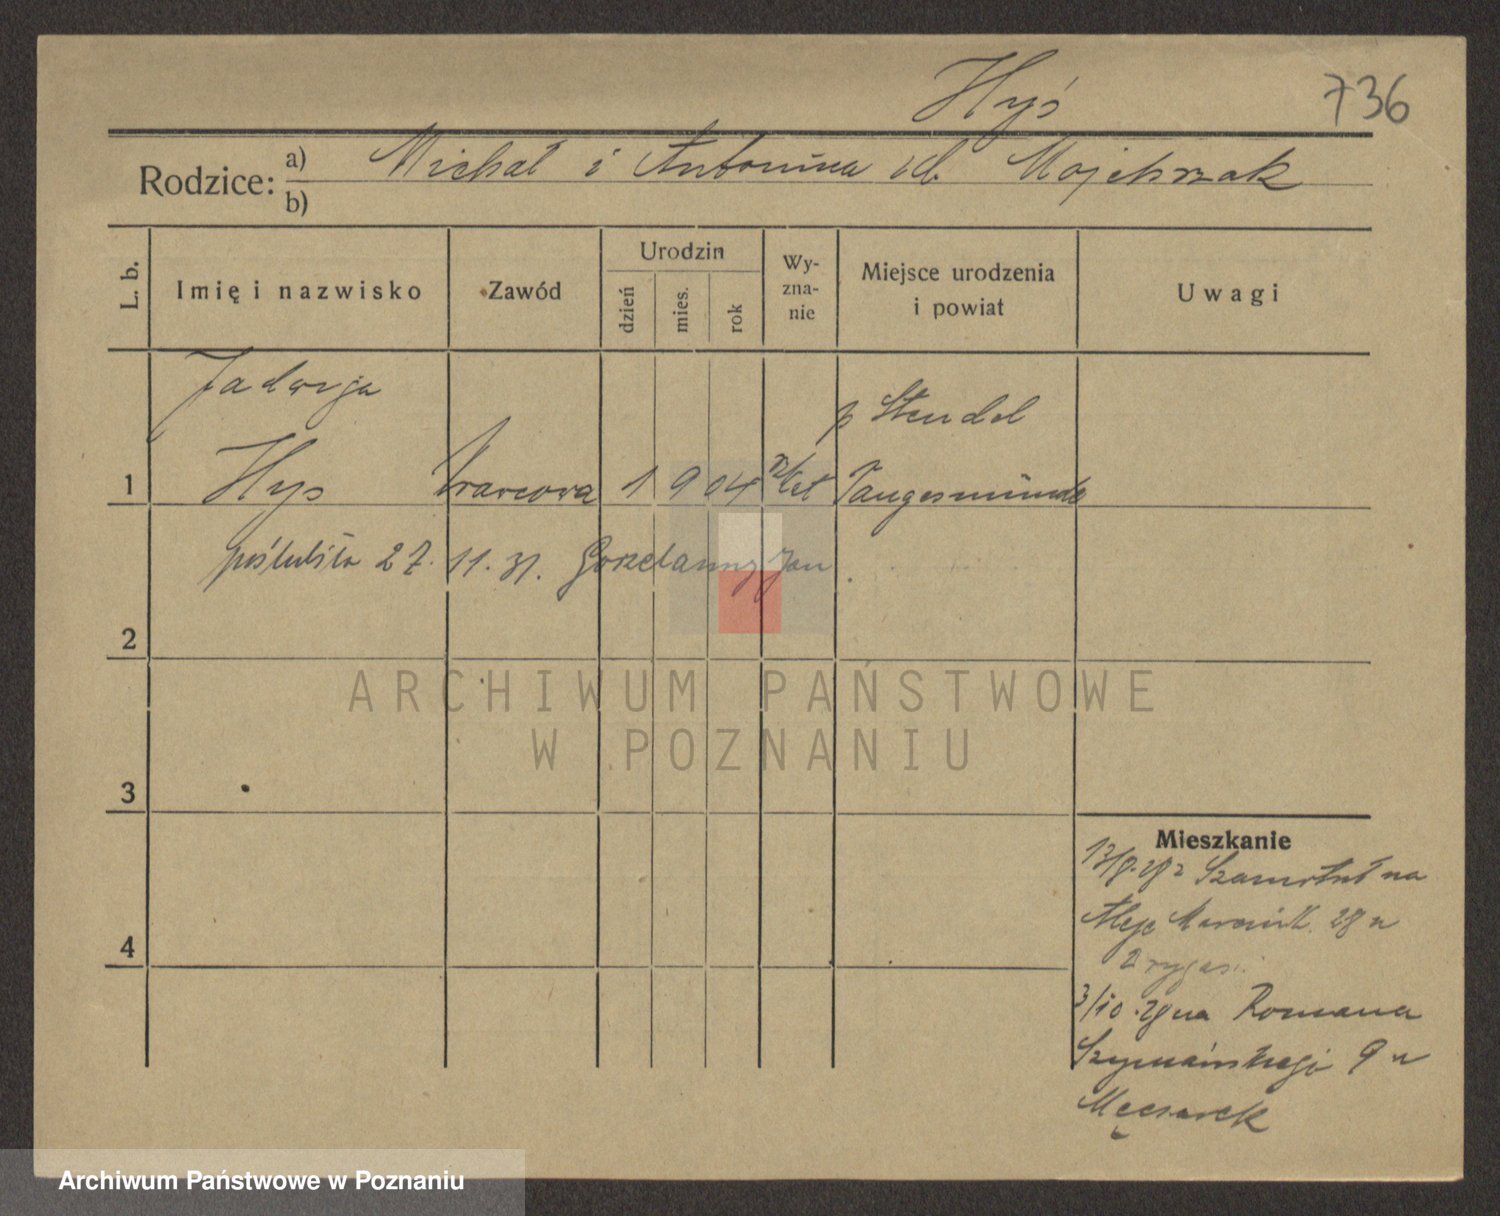 Hyś 736
Rodzice: a) Michał i Antonina Majchrzak
b)
L. b. Imię i nazwisko Zawód Urodzin dzień mies. rok Wy-zna-nie Miejsce urodzenia i powiat Uwagi
Jadwiga
p Stendal
1 Hys krawcowa 1 9 04 Tangermünde
poślubiła 27. 11. 31. Gorzelanny Jan
2
ARCHIWUM PAŃSTWOWE
W POZNANIU
3
Mieszkanie
z Szamotuł na
Aleje Marcink. 28 u
4
3/10. 29 na Romana
Szymańskiego 9 u
Męczarek
Archiwum Państwowe w Poznaniu